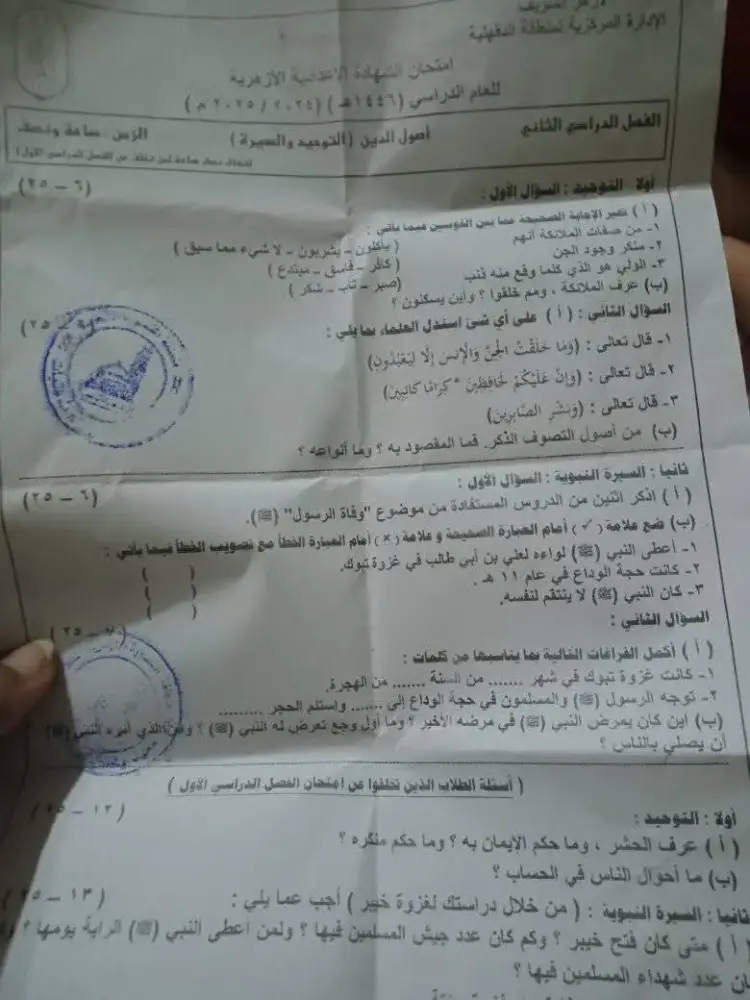 الأزهر الشريف
الإدارة المركزية لمنطقة الدقهلية
امتحان الشهادة الإعدادية الأزهرية
للعام الدراسي (١٤٤٦هـ) (٢٠٢٤ / ٢٠٢٥ م)
الفصل الدراسي الثاني أصول الدين (التوحيد والسيرة) الزمن : ساعة ونصف
أولا : التوحيد : السؤال الأول : (٦ – ٢٥)
( أ ) تخير الإجابة الصحيحة مما بين القوسين فيما يأتي :
١- من صفات الملائكة أنهم ( يأكلون – يشربون – لا شيء مما سبق )
٢- منكر وجود الجن ( كافر – فاسق – مبتدع )
٣- الولي هو الذي كلما وقع منه ذنب (صبر – تاب – شكر )
(ب) عرف الملائكة ، ومم خلقوا ؟ وأين يسكنون ؟
السؤال الثاني : ( أ ) على أي شئ استدل العلماء بما يلي : ٢٥)
١- قال تعالى : (وَمَا خَلَقْتُ الْجِنَّ وَالْإِنسَ إِلَّا لِيَعْبُدُونِ)
٢- قال تعالى : (وَإِنَّ عَلَيْكُمْ لَحَافِظِينَ * كِرَامًا كَاتِبِينَ)
٣- قال تعالى : (وَبَشِّرِ الصَّابِرِينَ)
(ب) من أصول التصوف الذكر. فما المقصود به ؟ وما أنواعه ؟
ثانيا : السيرة النبوية : السؤال الأول : (٦ – ٢٥)
( أ ) اذكر اثنين من الدروس المستفادة من موضوع "وفاة الرسول" (ﷺ).
(ب) ضع علامة (✓) أمام العبارة الصحيحة و علامة (×) أمام العبارة الخطأ مع تصويب الخطأ فيما يأتي :
١- أعطى النبي (ﷺ) لواءه لعلي بن أبي طالب في غزوة تبوك. ( )
٢- كانت حجة الوداع في عام ١١ هـ . ( )
٣- كان النبي (ﷺ) لا ينتقم لنفسه. ( )
السؤال الثاني : (٧ – ٢٥)
( أ ) أكمل الفراغات التالية بما يناسبها من كلمات :
١- كانت غزوة تبوك في شهر ....... من السنة ....... من الهجرة.
٢- توجه الرسول (ﷺ) والمسلمون في حجة الوداع إلى ....... واستلم الحجر .........
(ب) أين كان يمرض النبي (ﷺ) في مرضه الأخير ؟ وما أول وجع تعرض له النبي (ﷺ) ؟ ومن الذي أمره النبي (ﷺ)
أن يصلي بالناس ؟
( أسئلة الطلاب الذين تخلفوا عن امتحان الفصل الدراسي الأول )
أولا : التوحيد : (١٢ – ٢٥)
( أ ) عرف الحشر ، وما حكم الإيمان به ؟ وما حكم منكره ؟
(ب) ما أحوال الناس في الحساب ؟
ثانيا : السيرة النبوية : ( من خلال دراستك لغزوة خيبر ) أجب عما يلي : (١٣ – ٢٥)
( أ ) متى كان فتح خيبر ؟ وكم كان عدد جيش المسلمين فيها ؟ ولمن أعطى النبي (ﷺ) الراية يومها ؟
كان عدد شهداء المسلمين فيها ؟